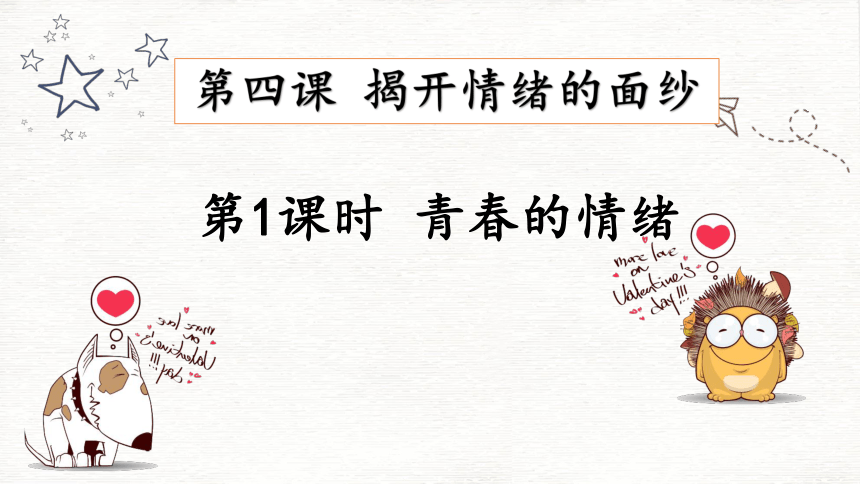 第四课 揭开情绪的面纱
第1课时 青春的情绪
more love
on
Valentine's
day!!!
more love
on
Valentine's
day!!!